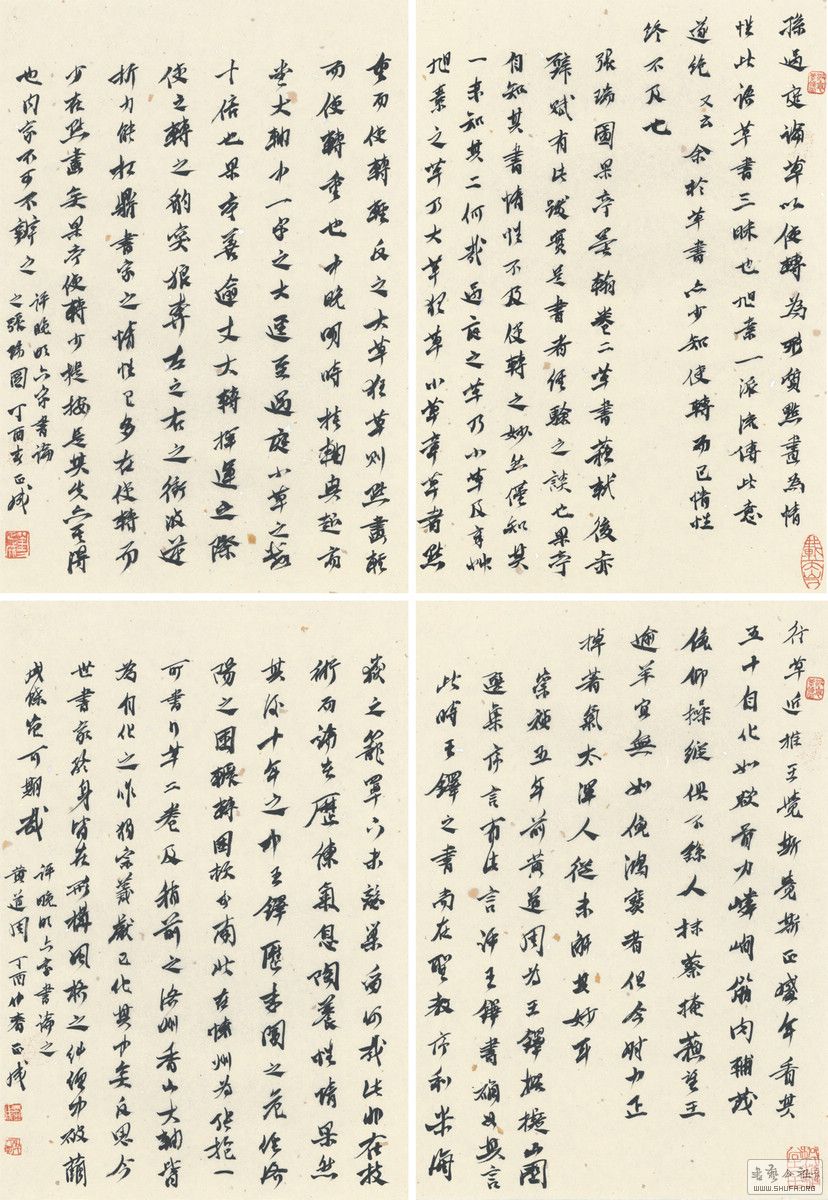 孫過庭論草以使轉為形質點畫為情
性此語草書三昧也旭素一派流傳此意
遂绝又云余於草書亦少知使轉而已情性
终不及也
張瑞圖果亭墨翰卷二草書蘇軾後赤
壁賦有此跋實是書者經驗之談也果亭
自知其書情性不及使轉之妙然僅知其
一未知其二何哉過庭之草乃小草及章草
旭素之草乃大草狂草小草章草者點
重而使轉輕反之大草狂草則點畫輕
而使轉重也中晚明時挂軸興起高
堂大軸中一字之大逕至過庭小草之數
十倍也果亭善逾丈大轉揮運之際
使之轉之豹突狼奔左之右之衝波逆
折力能扛鼎書家之情性已多在使轉而
少在點畫矣果亭使轉少提按是其失亦其得
也内家不可不辨之
評晚明六家書論
之張瑞圖丁酉春正成
行草近推王覺斯覺斯正盛年看其
五十自化如欲骨力嶙峋筋肉輔茂
俯仰操縱俱不繇人抹蔡掩蘇望王
逾羊宜無如倪鴻寶者但今時力正
掉著氣太渾人從未解其妙耳
崇禎五年前黃道周為王鐸擬山園
選集序言有此言評王鐸書確如其言
此時王鐸之書尚在聖教序和米海
嶽之籠罩下未 何哉此非在技
術而論者歷練氣息陶養性情果然
其後十年之中王鐸歷李闖之危
陽之圍輾轉困 南北在懷州為張抱一
可書行草二卷及稍前之洛州香山大軸皆
為自化之作獨宗羲獻已化其中矣反思今
世書家 形構風格之 中破繭
成蝶 可期哉
評晚明六家書論之
黃道周丁酉仲春正成
WWW.SHUFA.ORG